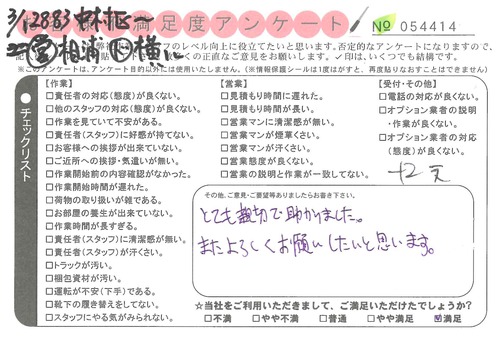 お客様満足度アンケート
№ 054414
3/12883
レベル向上に役立てたいと思います。否定的なアンケートになりますので、
くの正直なご意見をお願いします。✓印は、いくつでも結構です。
※このアンケートは、アンケート目的以外には使用いたしません。(※情報保護シールは1度はがすと、再度貼りなおすことはできません)
チェックリスト
【作業】
□責任者の対応(態度)が良くない。
□他のスタッフの対応(態度)が良くない。
□作業を見ていて不安がある。
□責任者(スタッフ)に好感が持てない。
□お客様への挨拶が出来ていない。
□ご近所への挨拶・気遣いが無い。
□作業開始前の内容確認がなかった。
□作業開始時間が遅れた。
□荷物の取り扱いが雑である。
□お部屋の養生が出来ていない。
□作業時間が長すぎる。
□責任者(スタッフ)に清潔感が無い。
□責任者(スタッフ)が汗くさい。
□トラックが汚い。
□梱包資材が汚い。
□運転が不安(下手)である。
□靴下の履き替えをしてない。
□スタッフにやる気がみられない。
【営業】
□見積もり時間に遅れた。
□見積もり時間が長い。
□営業マンに清潔感が無い。
□営業マンが煙草くさい。
□営業マンが汗くさい。
□営業態度が良くない。
□営業の説明と作業が一致してない。
【受付・その他】
□電話の対応が良くない。
□オプション業者の説明
・作業が良くない。
□オプション業者の対応
(態度)が良くない。
その他、ご意見・ご要望等ありましたらお書き下さい。
とても親切で助かりました。
またよろしくお願いしたいと思います。
☆当社をご利用いただきまして、ご満足いただけたでしょうか?
□不満 □やや不満 □普通 □やや満足 ☑満足